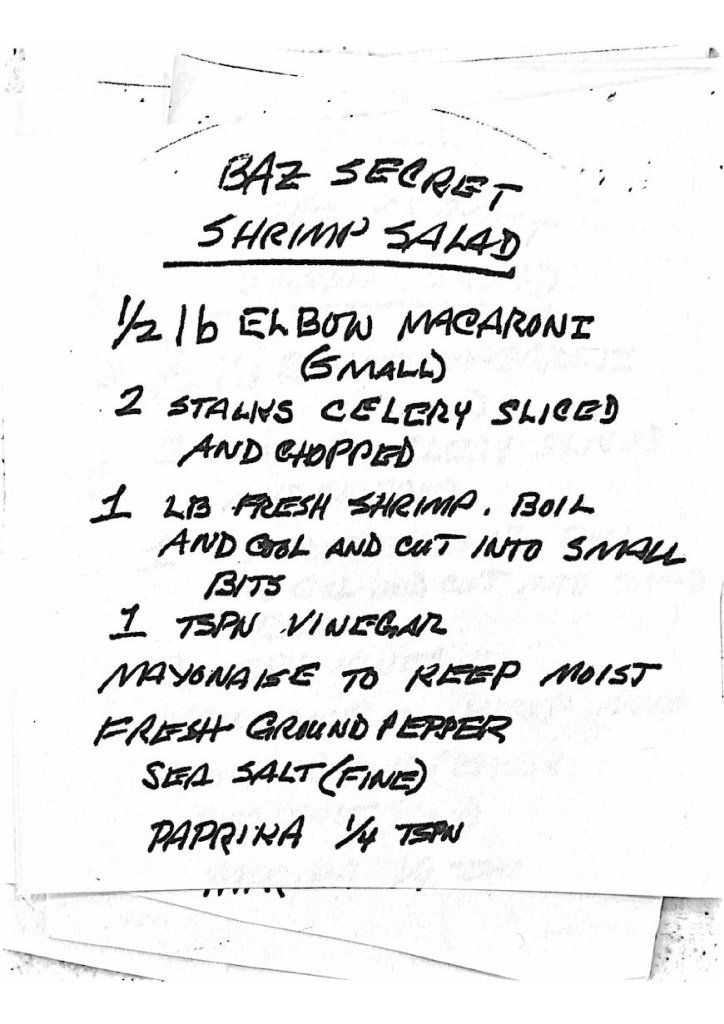 BAZ SECRET
SHRIMP SALAD
1/2 lb ELBOW MACARONI
(SMALL)
2 STALKS CELERY SLICED
AND CHOPPED
1 LB FRESH SHRIMP. BOIL
AND COOL AND CUT INTO SMALL
BITS
1 TSPN VINEGAR
MAYONAISE TO KEEP MOIST
FRESH GROUND PEPPER
SEA SALT (FINE)
PAPRIKA 1/4 TSPN